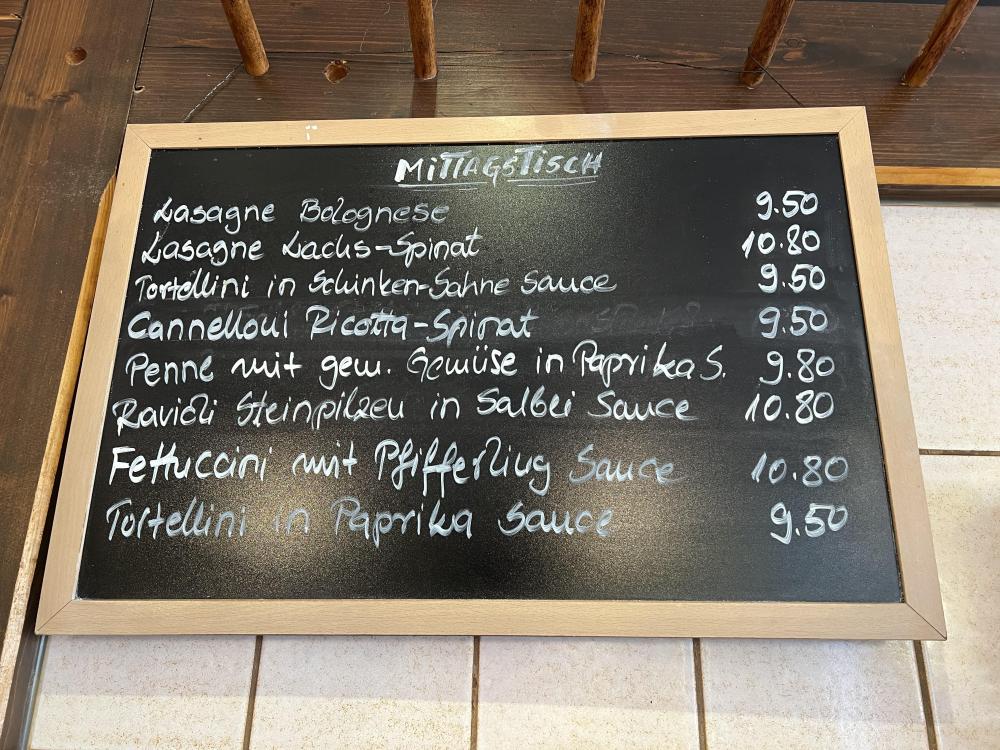 MITTAGSTISCH
Lasagne Bolognese 9.50
Lasagne Lachs-Spinat 10.80
Tortellini in Schinken-Sahne Sauce 9.50
Cannelloni Ricotta-Spinat 9.50
Penne mit gem. Gemüse in Paprika S. 9.80
Ravioli Steinpilzen in Salbei Sauce 10.80
Fettuccini mit Pfifferling Sauce 10.80
Tortellini in Paprika Sauce 9.50